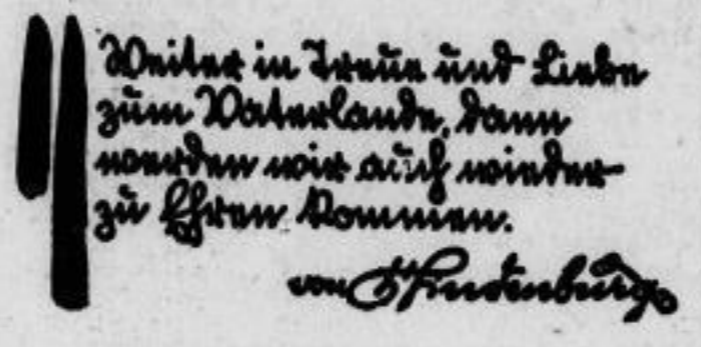 Weiter in Treue und Liebe
zum Vaterlande, dann
werden wir auch wieder
zu Ehren kommen.
von Hindenburg